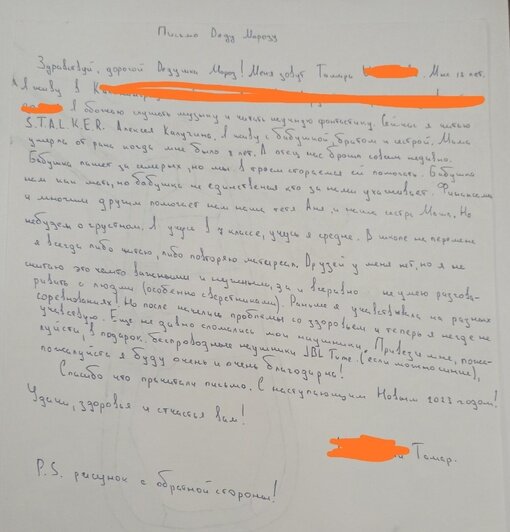 Письмо Деду Морозу
Здравствуй, дорогой Дедушка Мороз! Меня зовут Тамара. Мне 12 лет.
Я живу в
я обожаю слушать музыку и читать научную фантастику. Сейчас я читаю
S.T.A.L.K.E.R. Алексея Калугина. Я живу с бабушкой братом и сестрой. Мама
умерла от рака когда мне было 8 лет. А отец нас бросил совсем недавно.
Бабушка пашет за семерых, но мы втроем стараемся ей помогать. Бабушка
нам как мать, но бабушка не единственная кто за нами ухаживает. Финансами
и многим другим помогает нам наша тетя Аня и наша сестра Маша. Но
небудем о грустном. Я учусь в 7 классе, учусь я средне. В школе на перемене
я всегда либо читаю, либо повторяю материал. Друзей у меня нет, но я не
считаю это чем-то важным и нужным, да и всеравно не умею разгова-
ривать с людми (особенно сверстниками). Раньше я учавствовала на разных
соревнованиях! Но после начелись проблемы со здоровьем и теперь я негде не
учавствую. Еще не давно сломались мои наушники. Привези мне, пожа-
луйста, в подарок беспроводные наушники JBL Tune. (если можно синие),
пожалуйста я буду очень и очень благодарна!
Спасибо что прочитали письмо. С наступающим Новым 2023 годом!
Удачи, здоровья и счастья вам!
Тамар.
P.S. рисунок с обратной стороны!